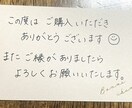 この度は ご購入いただき
ありがとうございます☺
またご縁がありましたら
よろしくお願いいたします。